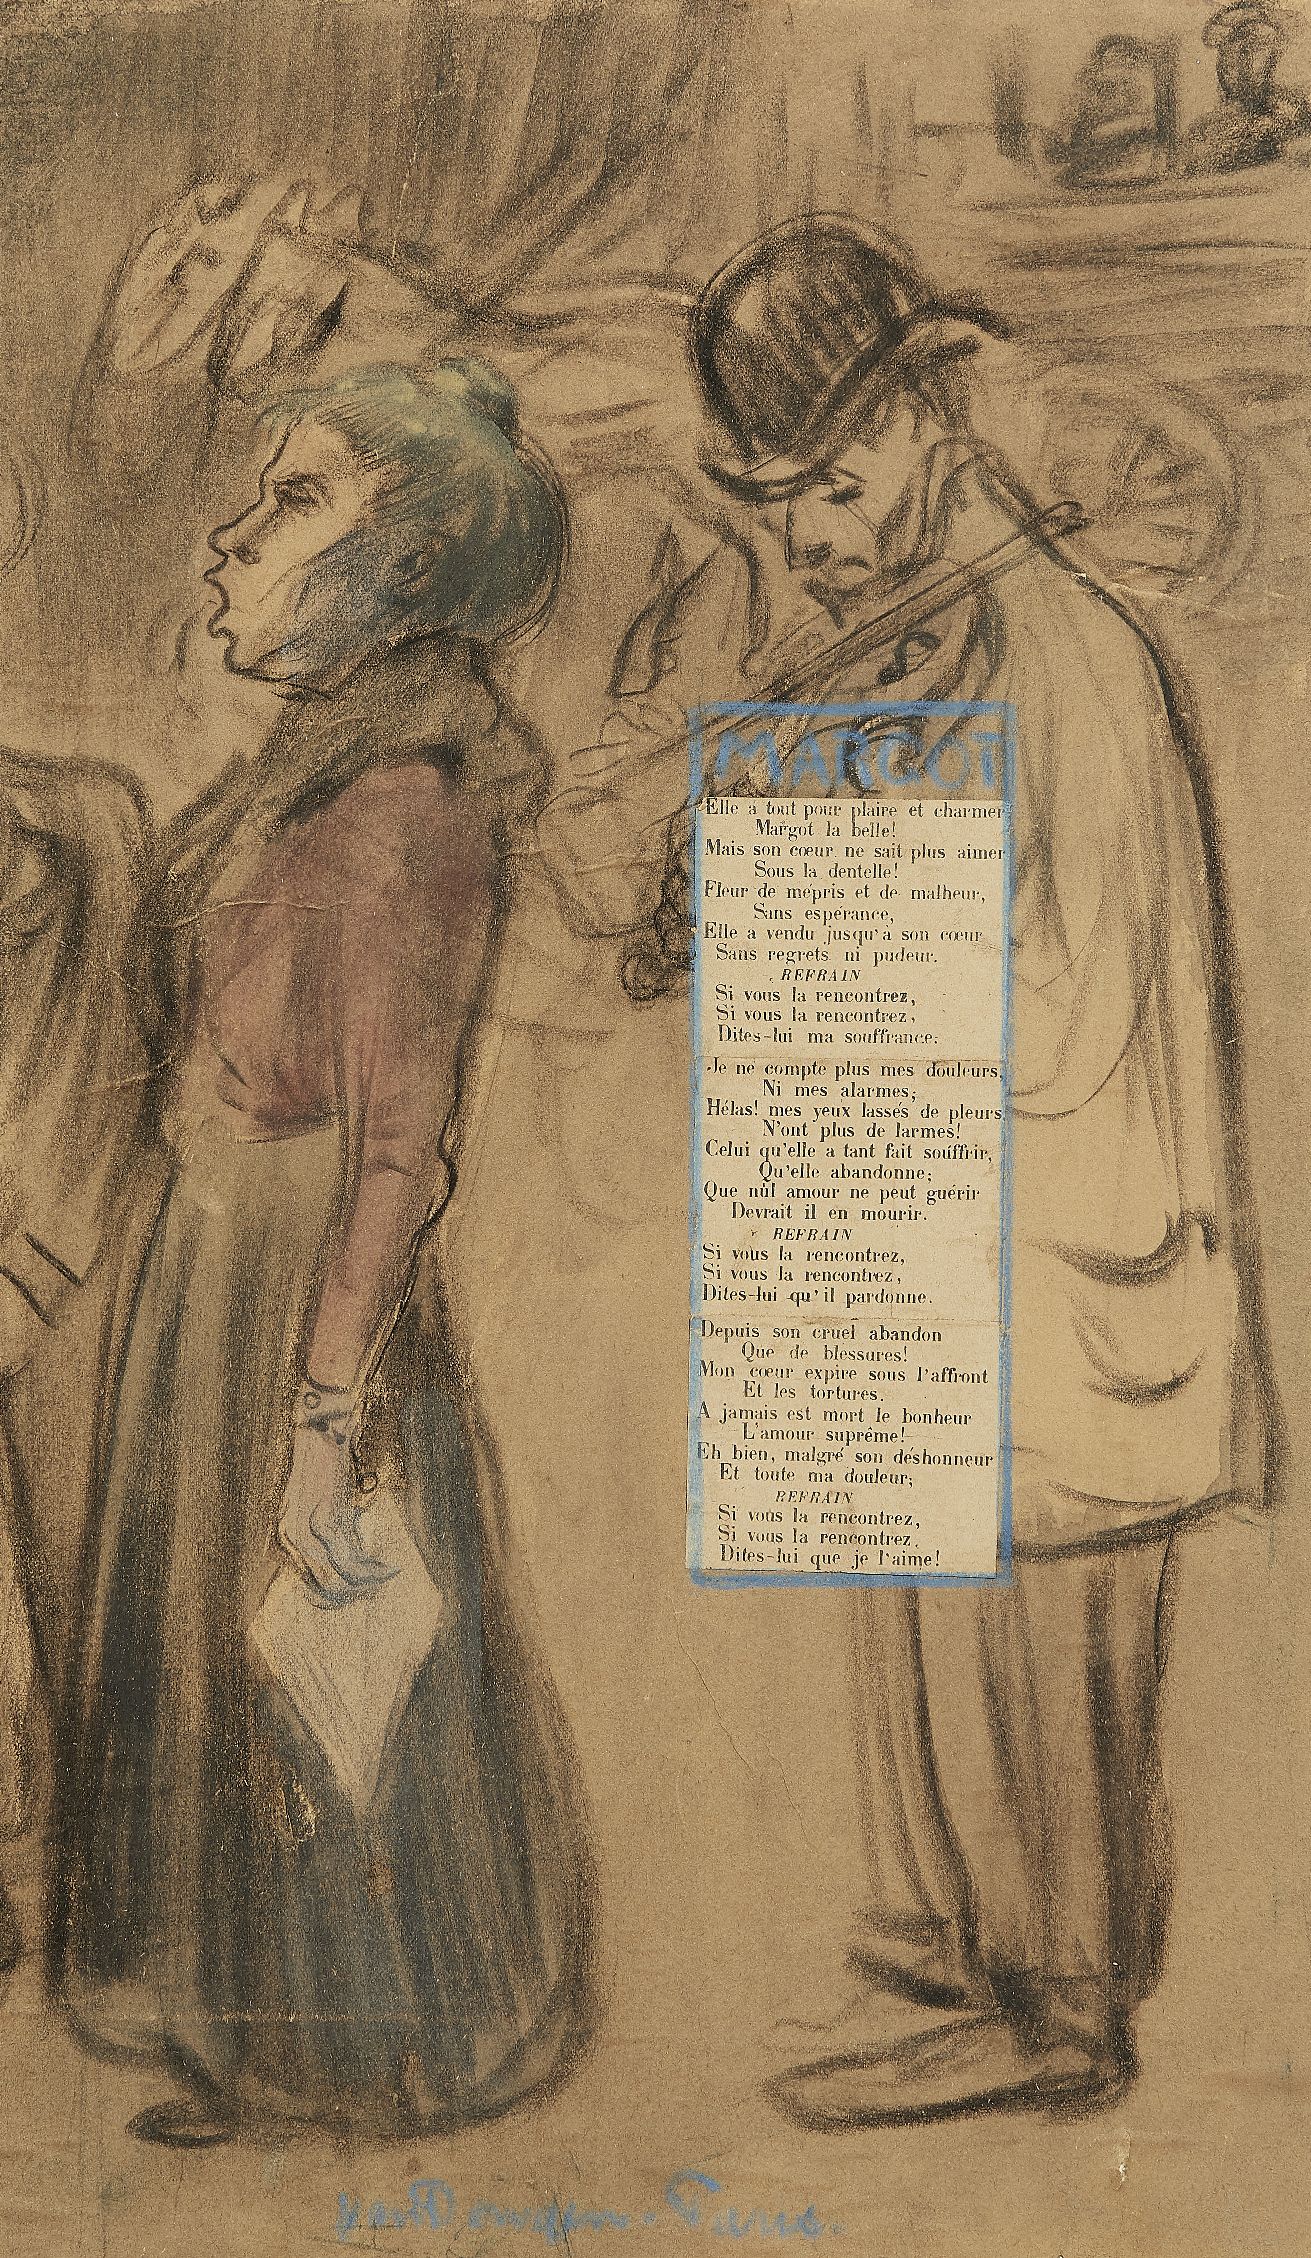 MARGOT
Elle a tout pour plaire et charmer
Margot la belle!
Mais son cœur ne sait plus aimer
Sous la dentelle!
Fleur de mépris et de malheur,
Sans espérance,
Elle a vendu jusqu'à son cœur
Sans regrets ni pudeur.
REFRAIN
Si vous la rencontrez,
Si vous la rencontrez,
Dites-lui ma souffrance.
Je ne compte plus mes douleurs,
Ni mes alarmes;
Hélas! mes yeux lassés de pleurs,
N'ont plus de larmes!
Celui qu'elle a tant fait souffrir,
Qu'elle abandonne;
Que nul amour ne peut guérir
Devrait il en mourir.
REFRAIN
Si vous la rencontrez,
Si vous la rencontrez,
Dites-lui qu'il pardonne.
Depuis son cruel abandon
Que de blessures!
Mon cœur expire sous l'affront
Et les tortures.
A jamais est mort le bonheur
L'amour suprême!
Eh bien, malgré son déshonneur
Et toute ma douleur;
REFRAIN
Si vous la rencontrez,
Si vous la rencontrez,
Dites-lui que je l'aime!
van Dongen. Paris.